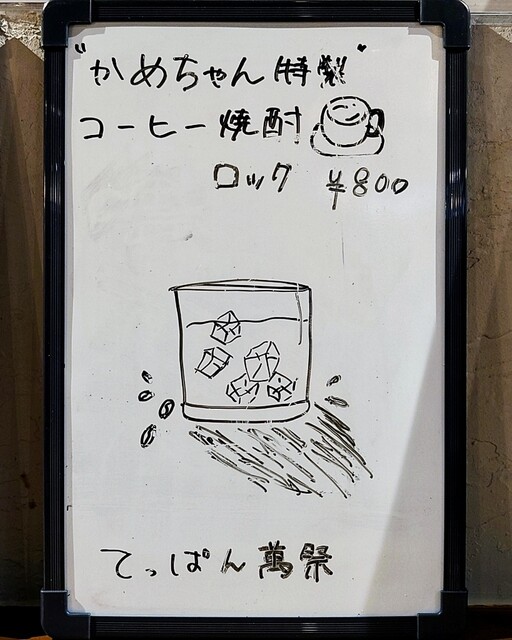 "かめちゃん特製"
コーヒー焼酎
ロック ¥800
てっぱん萬祭